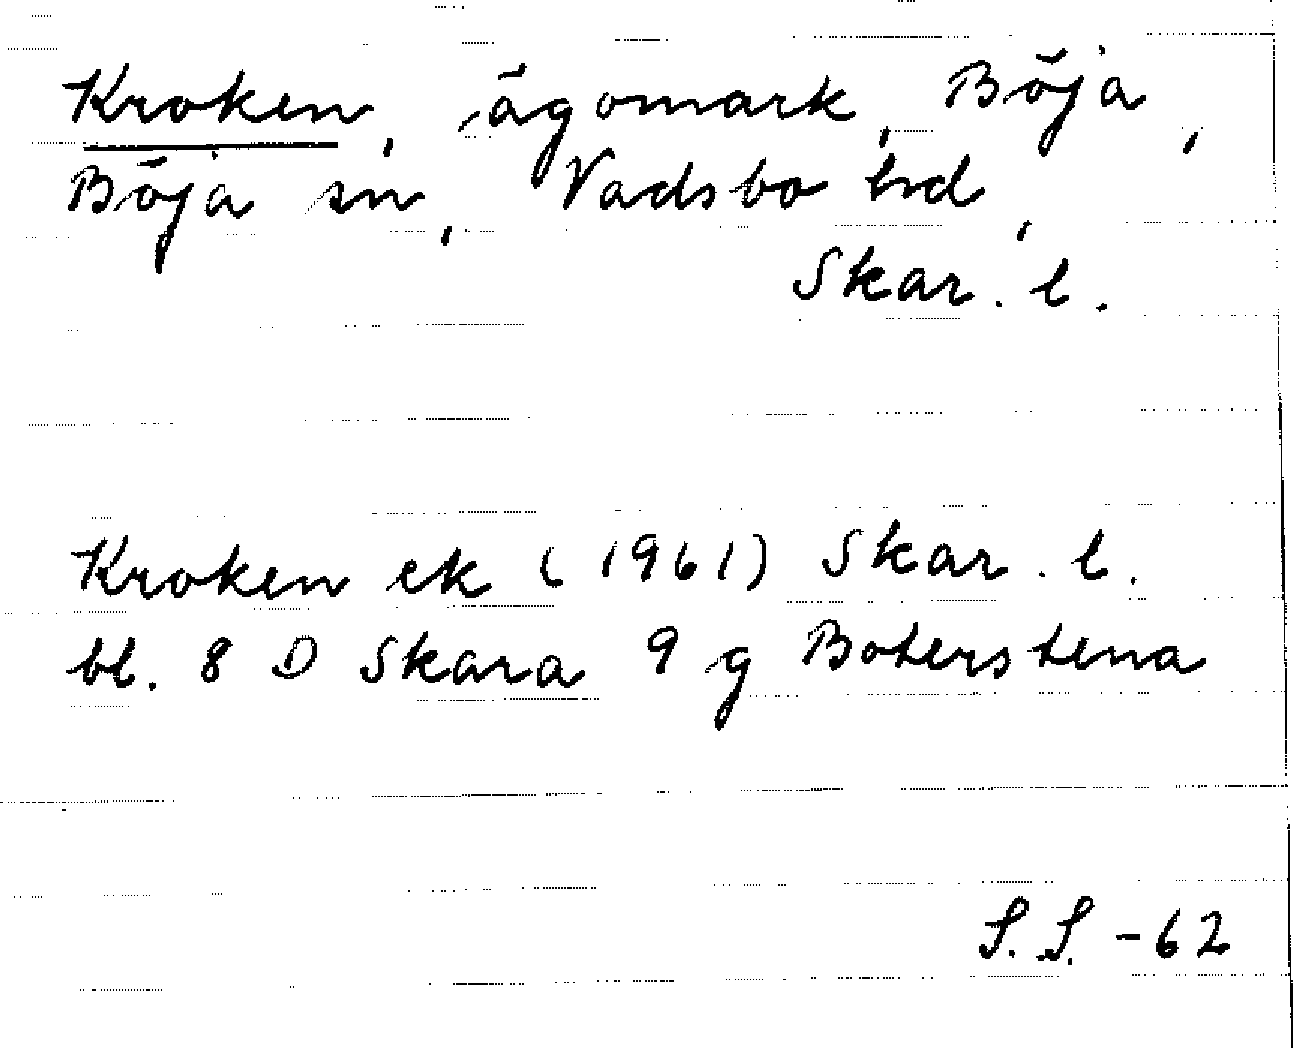 Kroken, ägomark, Böja,
Böja sn, Vadsbo hd,
Skar. l.
Kroken ek (1961) Skar. l.
bl. 8 D Skara 9 g Boterstena
S.S. -62